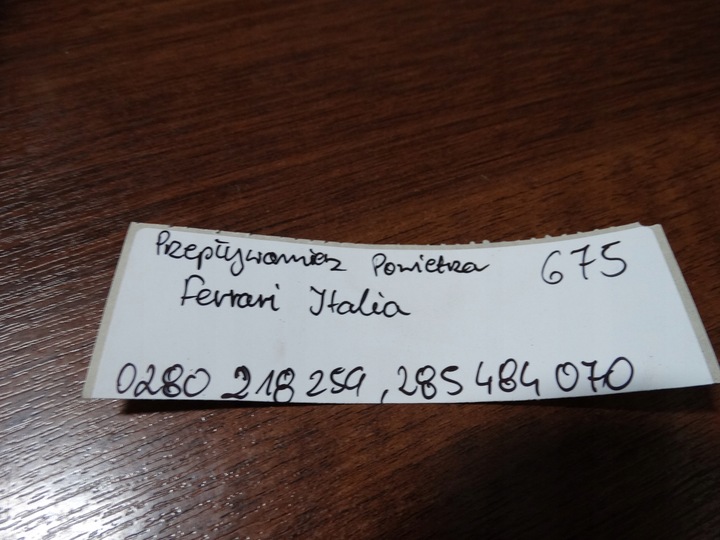 Przepływomierz Powietrza 675
Ferrari Italia
0280 218 259, 285 484 070